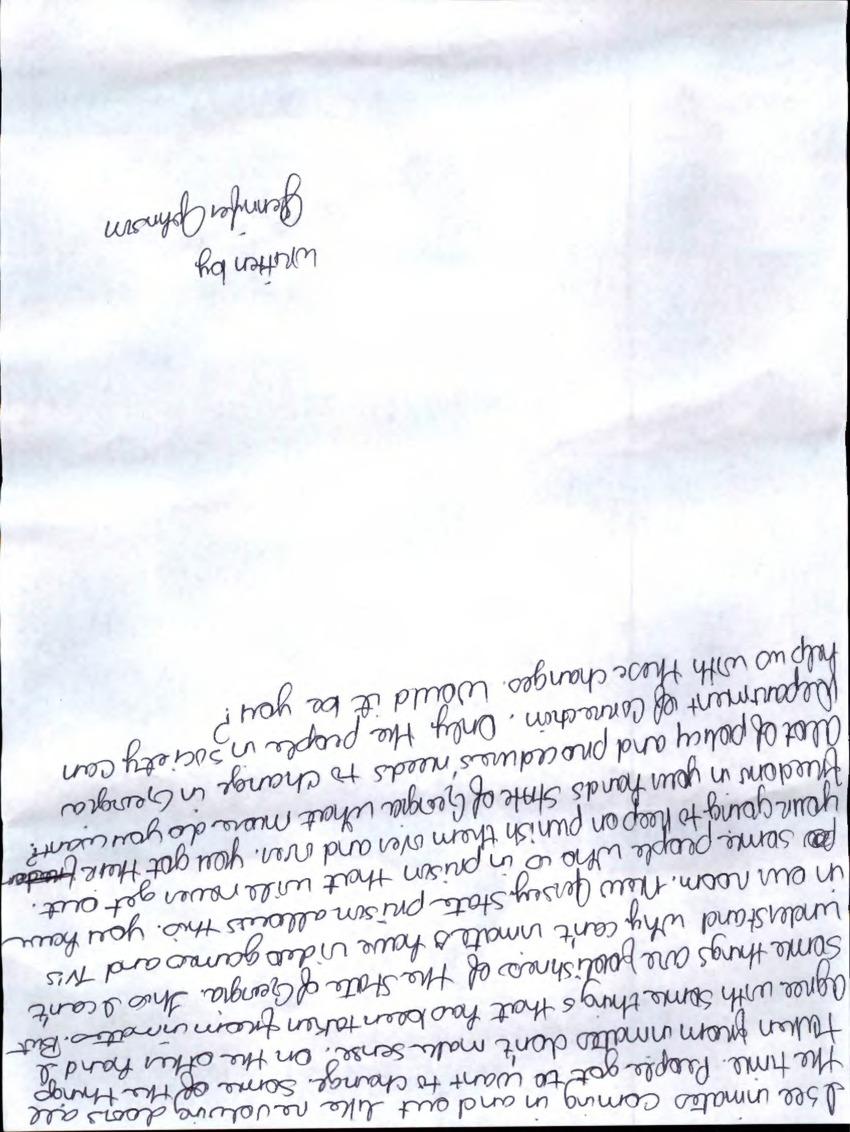 I see inmates coming in and out like revolving doors all
the time. People got to want to change. Some of the things
taken from inmates don't make sense. On the other hand I
agree with some things that has been taken from inmates. But
some things are foolishness of the State of Georgia. This I can't
understand why can't inmates have video games and TVs
in our room. New Jersey State prison allows this. You have
some people who is in prison that will never get out.
your going to keep on punish them over and over. you got there
freedom in your hands State of Georgia what more do you want?
alot of policy and procedures needs to change in Georgia
Department of Correction. Only the people in society can
help us with these changes. Would it be you?
written by
Jennifer Johnson